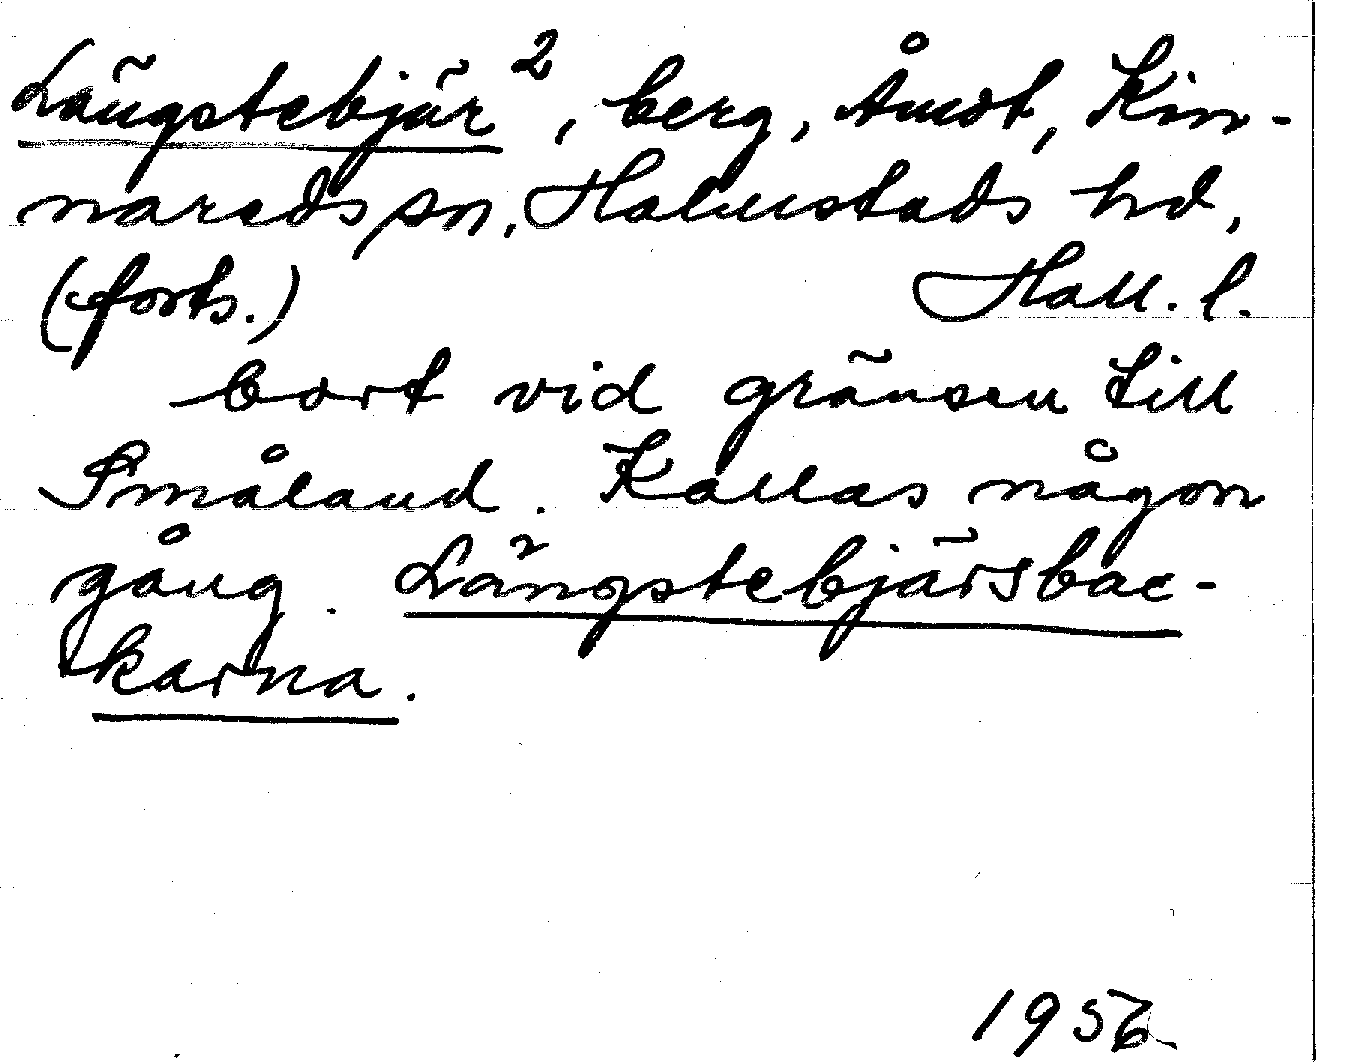 Längstebjär², berg, Åmot, Kin-
nareds sn, Halmstads hd,
(forts.) Hall. l.
bort vid gränsen till
Småland. Kallas någon
gång. Längstebjärsbac-
karna.
1956